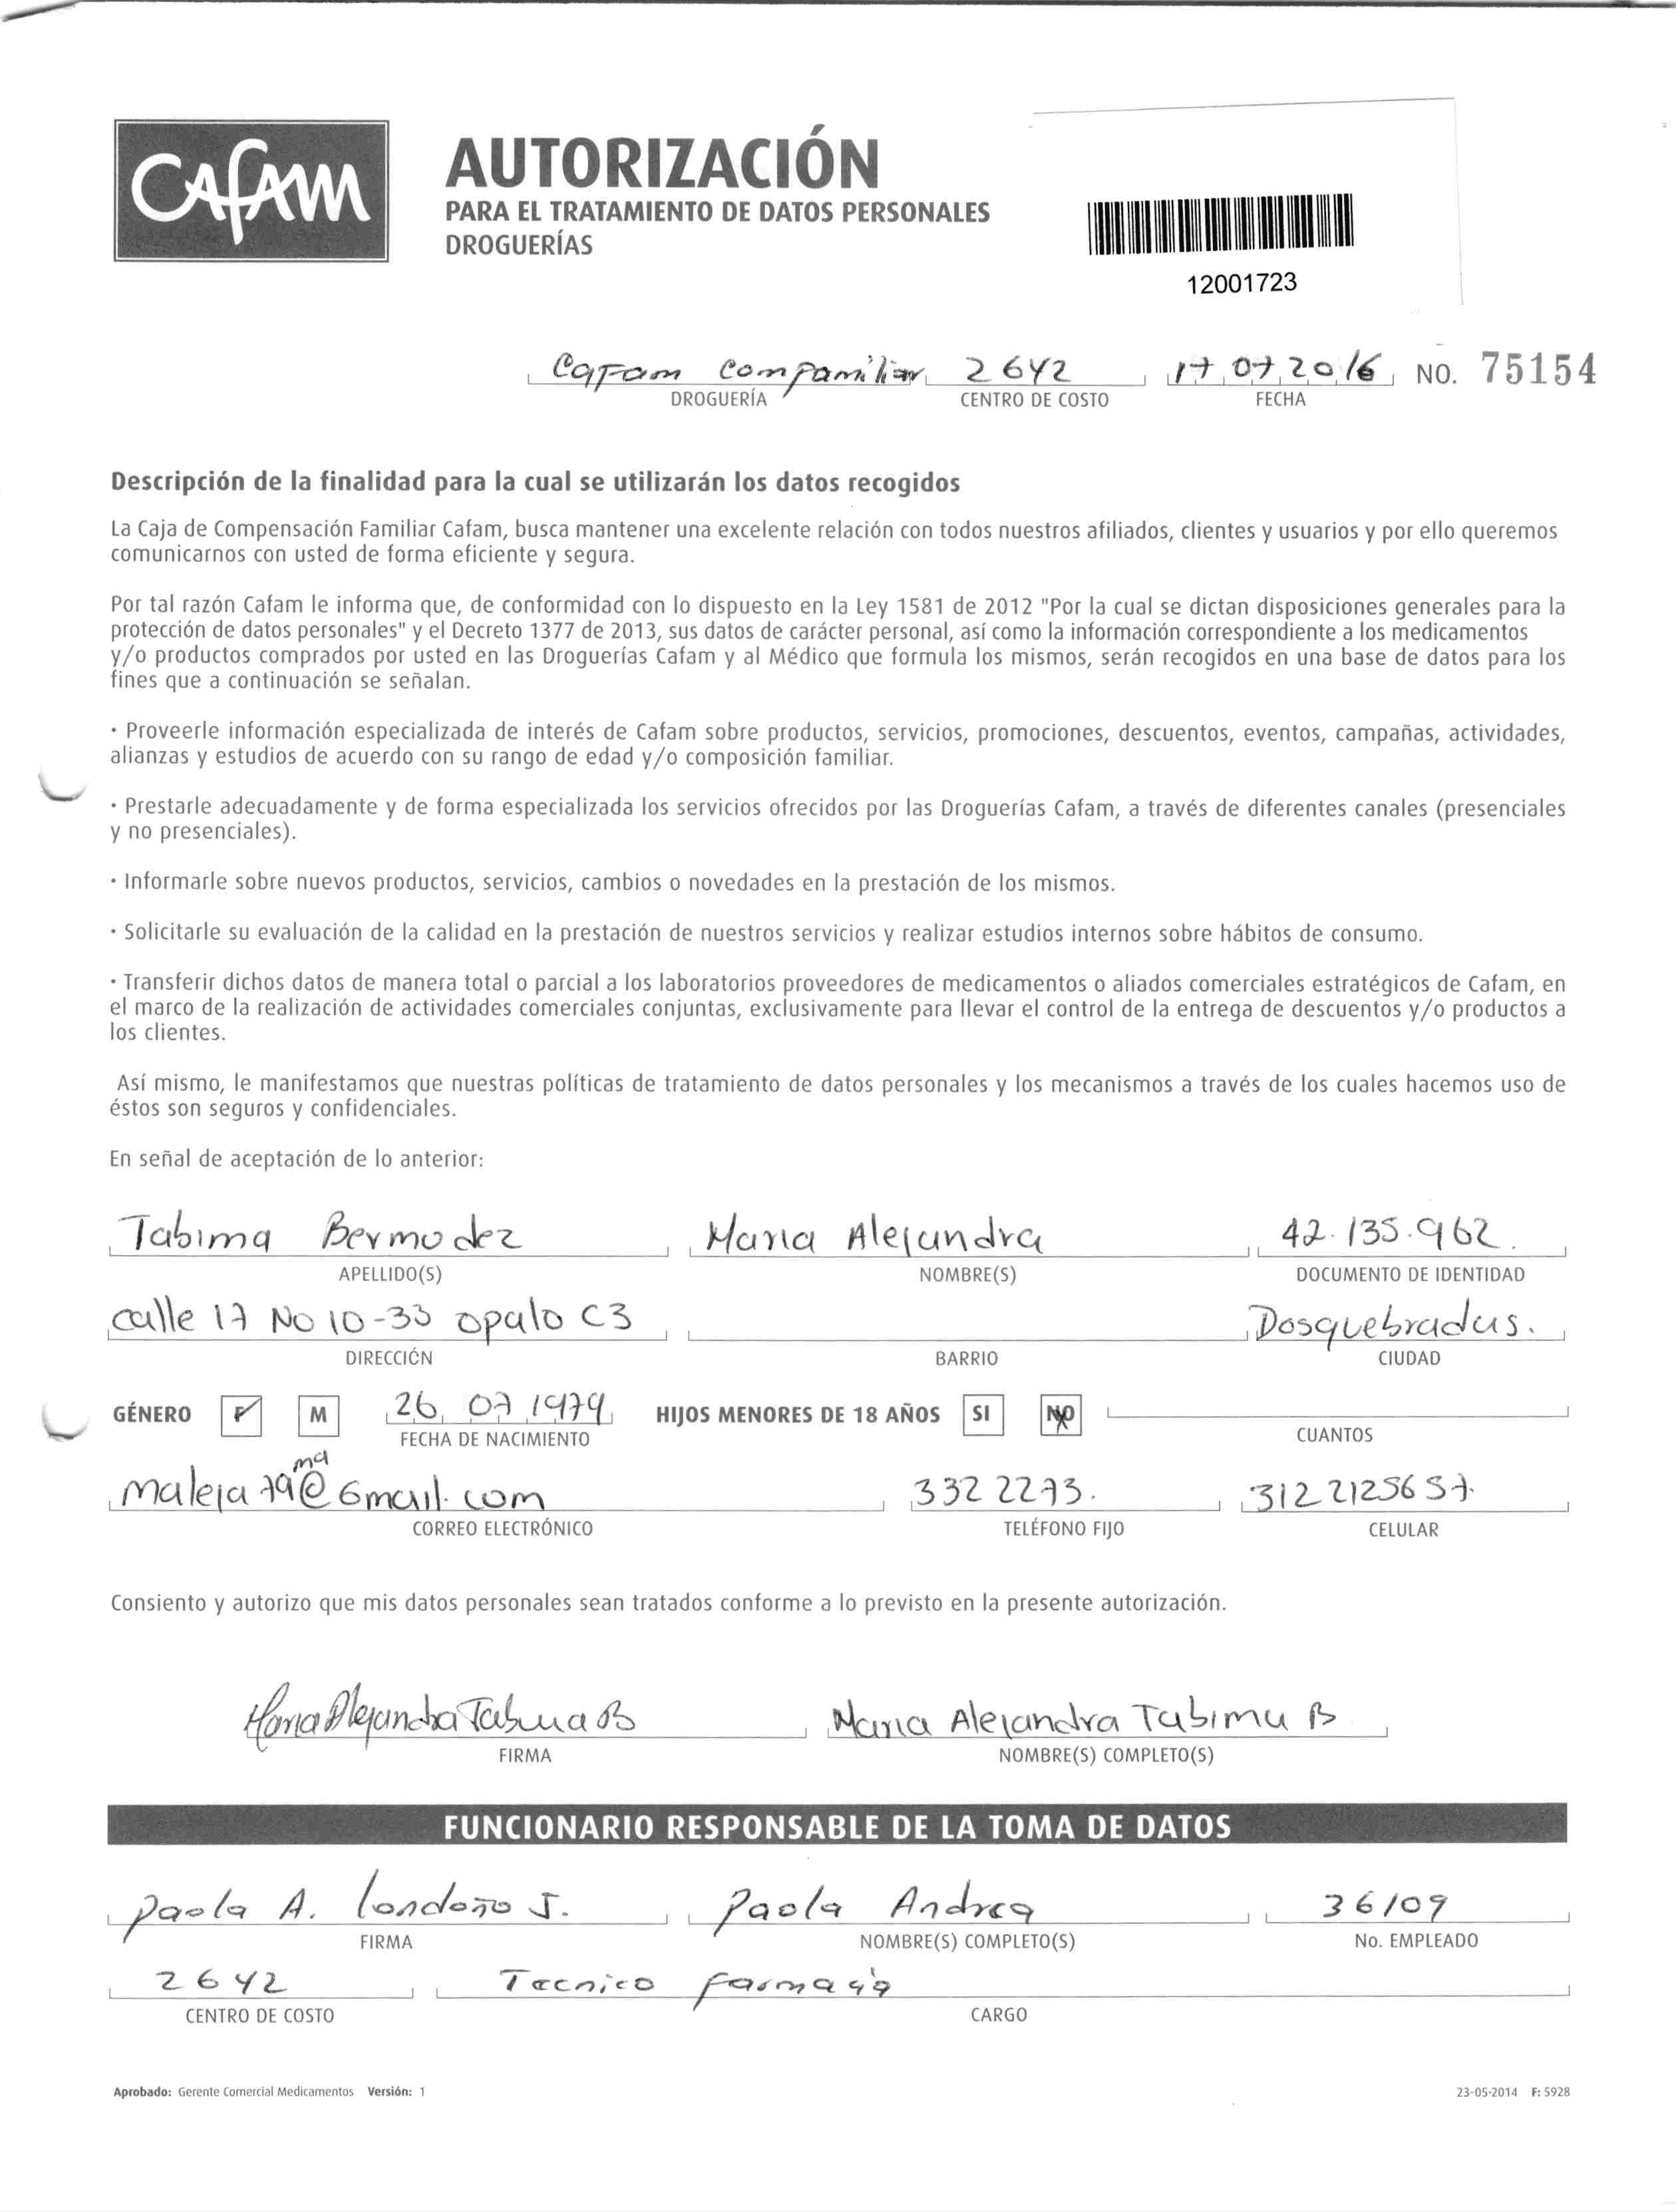 CAFAM
AUTORIZACIÓN
PARA EL TRATAMIENTO DE DATOS PERSONALES
DROGUERÍAS
12001723
Cafam Comfamiliar 2642 17 07 2016 NO. 75154
DROGUERÍA CENTRO DE COSTO FECHA
Descripción de la finalidad para la cual se utilizarán los datos recogidos
La Caja de Compensación Familiar Cafam, busca mantener una excelente relación con todos nuestros afiliados, clientes y usuarios y por ello queremos
comunicarnos con usted de forma eficiente y segura.
Por tal razón Cafam le informa que, de conformidad con lo dispuesto en la Ley 1581 de 2012 "Por la cual se dictan disposiciones generales para la
protección de datos personales" y el Decreto 1377 de 2013, sus datos de carácter personal, así como la información correspondiente a los medicamentos
y/o productos comprados por usted en las Droguerías Cafam y al Médico que formula los mismos, serán recogidos en una base de datos para los
fines que a continuación se señalan.
· Proveerle información especializada de interés de Cafam sobre productos, servicios, promociones, descuentos, eventos, campañas, actividades,
alianzas y estudios de acuerdo con su rango de edad y/o composición familiar.
· Prestarle adecuadamente y de forma especializada los servicios ofrecidos por las Droguerías Cafam, a través de diferentes canales (presenciales
y no presenciales).
· Informarle sobre nuevos productos, servicios, cambios o novedades en la prestación de los mismos.
· Solicitarle su evaluación de la calidad en la prestación de nuestros servicios y realizar estudios internos sobre hábitos de consumo.
· Transferir dichos datos de manera total o parcial a los laboratorios proveedores de medicamentos o aliados comerciales estratégicos de Cafam, en
el marco de la realización de actividades comerciales conjuntas, exclusivamente para llevar el control de la entrega de descuentos y/o productos a
los clientes.
Así mismo, le manifestamos que nuestras políticas de tratamiento de datos personales y los mecanismos a través de los cuales hacemos uso de
éstos son seguros y confidenciales.
En señal de aceptación de lo anterior:
Tabima Bermudez Maria Alejandra 42.135.962.
APELLIDO(S) NOMBRE(S) DOCUMENTO DE IDENTIDAD
calle 17 No 10-33 opalo C3 Dosquebradas.
DIRECCIÓN BARRIO CIUDAD
GÉNERO F M 26 07 1979 HIJOS MENORES DE 18 AÑOS SI NO
FECHA DE NACIMIENTO CUANTOS
maleja79ma@Gmail.com 332 2273. 312 2125657.
CORREO ELECTRÓNICO TELÉFONO FIJO CELULAR
Consiento y autorizo que mis datos personales sean tratados conforme a lo previsto en la presente autorización.
Maria Alejandra Tabima B Maria Alejandra Tabima B
FIRMA NOMBRE(S) COMPLETO(S)
FUNCIONARIO RESPONSABLE DE LA TOMA DE DATOS
Paola A. Londoño J. Paola Andrea 36109
FIRMA NOMBRE(S) COMPLETO(S) No. EMPLEADO
2642 Tecnico
CENTRO DE COSTO CARGO
Aprobado: Gerente Comercial Medicamentos Versión: 1 23-05-2014 F: 5928